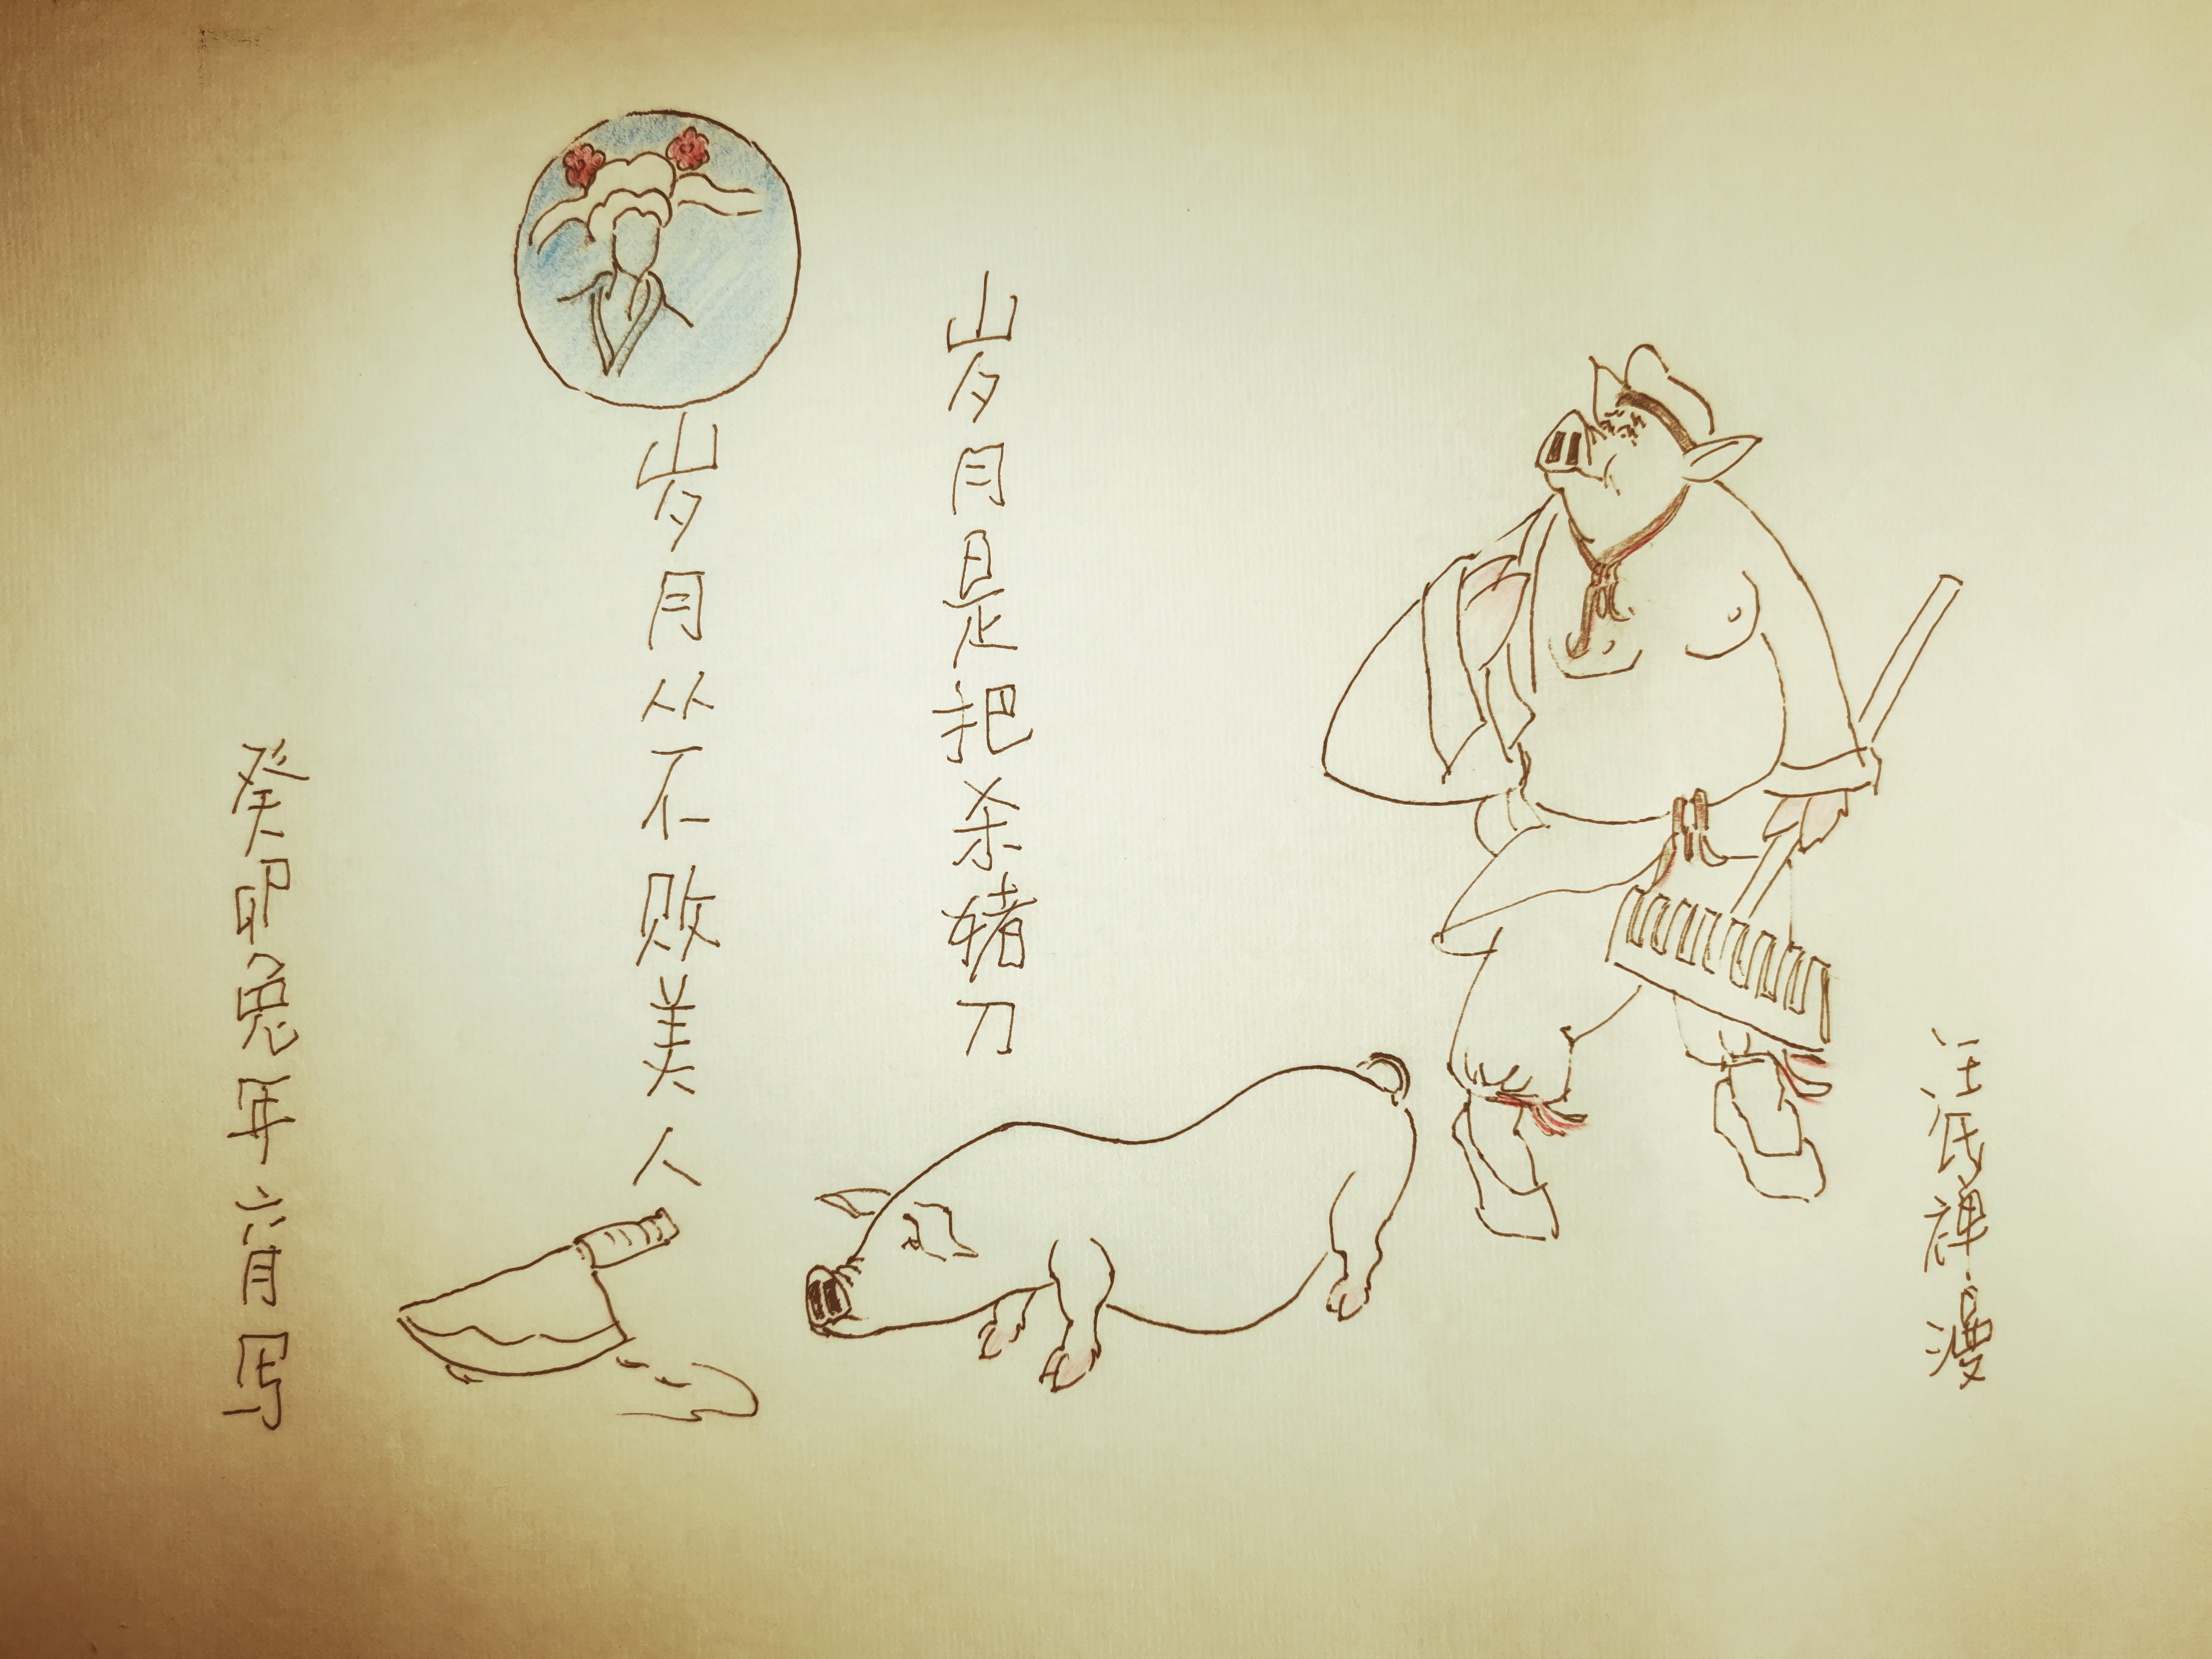 汪氏禅漫
岁月是把杀猪刀
岁月从不败美人
癸卯兔年六月写